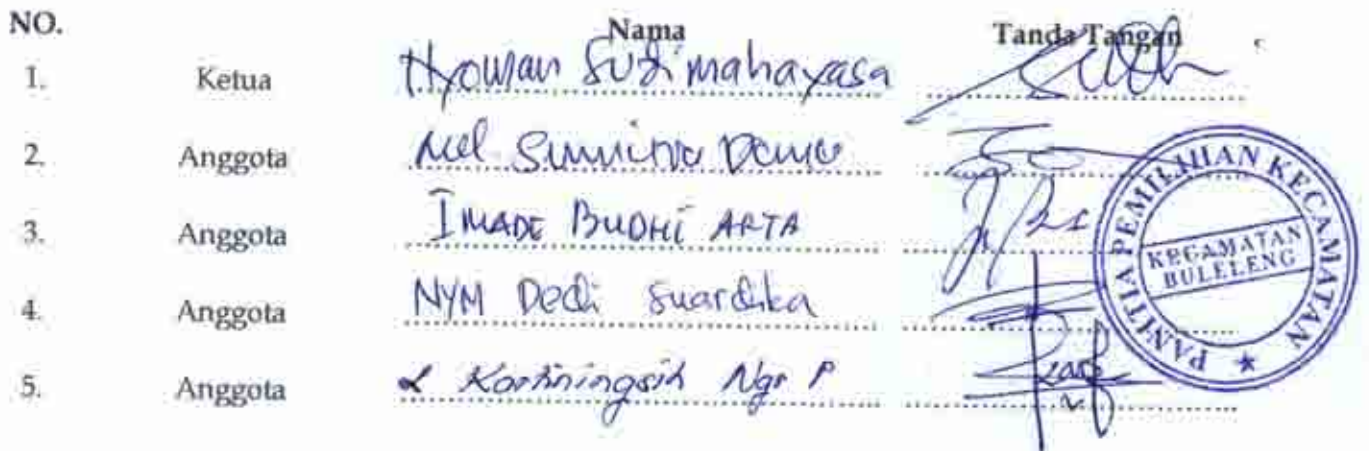 NO. Nama Tanda Tangan
1. Ketua Nyoman Sudimahayasa
2. Anggota
3. Anggota I MADE BUDHI ARTA
4. Anggota NYM Dedi Suardika
5. Anggota Kartiningsih Ngr P
PANITIA PEMILIHAN KECAMATAN
KECAMATAN
BULELENG